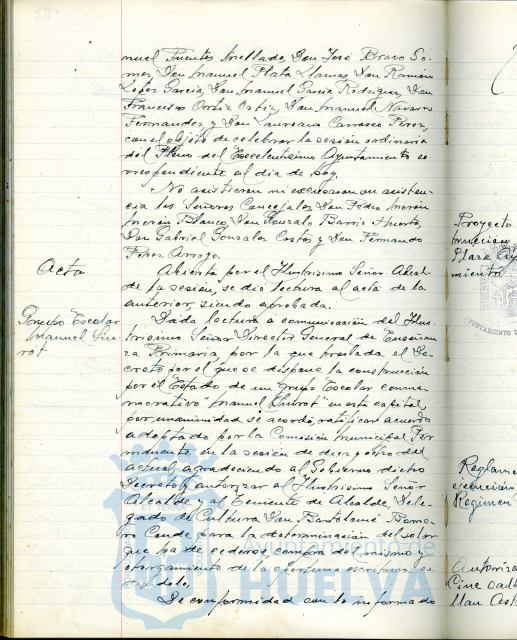 nuel Fuentes Mellado, Don José Bravo Go-
mez, Don Manuel Plata Llamas, Don Ramón
Lopez Garcia, Don Manuel Garcia Rodriguez, Don
Francisco Ortiz Ortiz, Don Manuel Navarro
Fernandez y Don Laureano Carrasco Perez,
con el objeto de celebrar la sesión ordinaria
del Pleno del Excelentisimo Ayuntamiento co-
rrespondiente al dia de hoy.
No asistieron ni excusaron su asisten-
cia los Señores Concejales, Don Pedro Morón
Morón Blanco, Don Gonzalo Barris Huerto,
Don Gabriel Gonzalez Costos y Don Fernando
Perez Arroyo.
Acta
Abierta por el Ilustrisimo Señor Alcal-
de la sesión, se dio lectura al acta de la
anterior, siendo aprobada.
Grupo Escolar
Manuel Siu-
rot
Dada lectura a comunicación del Ilus-
trisimo Señor Director General de Enseñan-
za Primaria, por la que traslada el De-
creto por el que se dispone la construcción
por el Estado de un grupo Escolar conme-
morativo "Manuel Siurot" en esta capital,
por unanimidad se acordó, ratificar acuerdo
adoptado por la Comisión Municipal Per-
manente en la sesión de dieciocho del
actual, agradeciendo al Gobierno dicho
Decreto y autorizar al Ilustrisimo Señor
Alcalde y al Teniente de Alcalde, Dele-
gado de Cultura Don Bartolomé Borre-
ro Conde para la determinación del solar
que ha de cederse, compra del mismo y
otorgamiento de la oportuna escritura de
De conformidad con lo informado
Proyecto
Plaza Ay
miento
Reglame
ejecución
Regimen
Autoriza
Cine
Ayuntamiento de
HUELVA